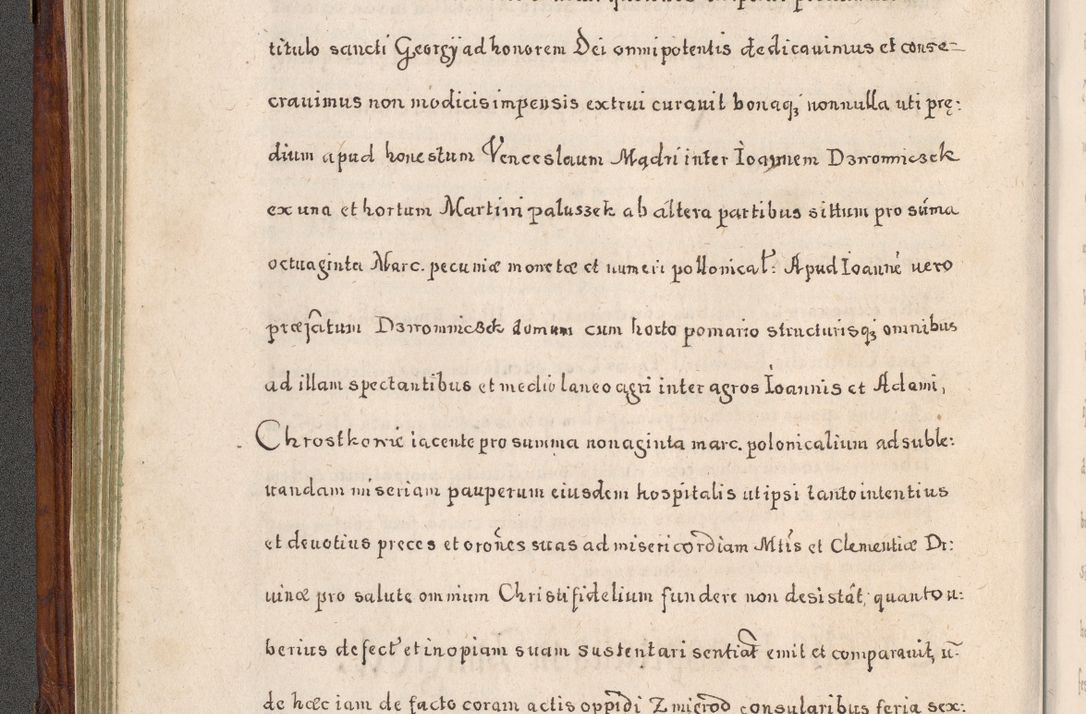 titulo sancti Georgÿ ad honorem Dei omnipotentis dedicauimus et conse-
crauimus non modicis impensis extrui curauit bonaqȝ nonnulla uti prę:
dium apud honestum Venceslaum Mądri inter Ioannem Dzwomniczek
ex una et hortum Martini paluszek ab altera partibus situm pro sūma
octuaginta Marc. pecuniæ monetæ et numeri pollonical: Apud Ioannē uero
præfatum Dzwomniczek domum cum horto pomario structurisqȝ omnibus
ad illam spectantibus et medio laneo agri inter agros Ioannis et Adami,
Chrostkowie iacente pro summa nonaginta marc. polonicalium ad suble:
uandam miseriam pauperum eiusdem hospitalis ut ipsi tanto intentius
et deuotius preces et orōnes suas ad misericordiam Mtis et Clementiæ Di:
uinæ pro salute omnium Christifidelium fundere non desistāt, quanto u:
berius defect' et inopiam suam sustentari sentiāt emit et comparauit, ū-
de hæc iam de facto coram actis oppidi Zmigrod consularibus feria sex: